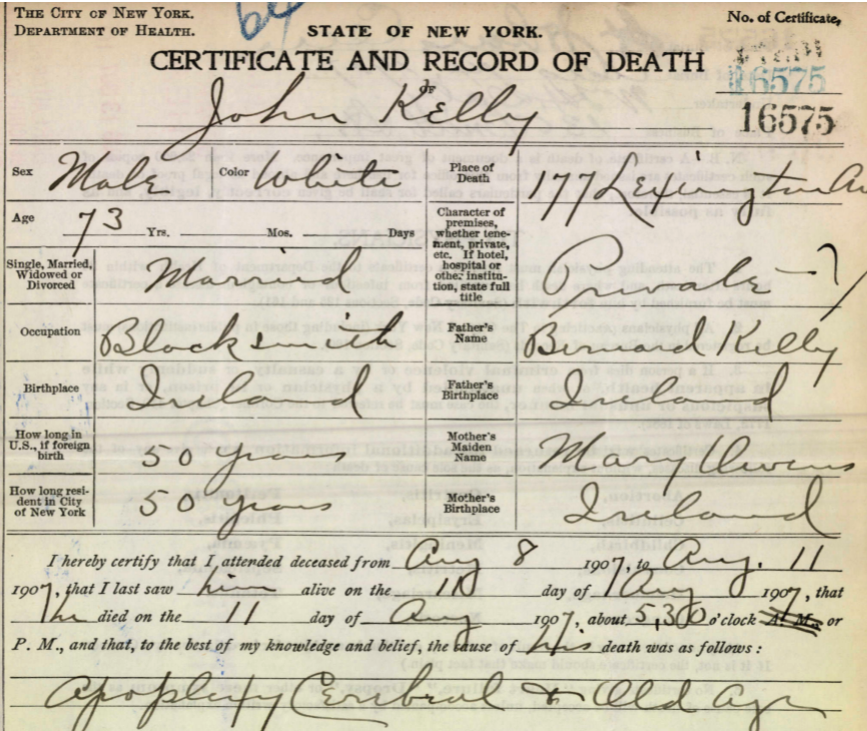 THE CITY OF NEW YORK.
DEPARTMENT OF HEALTH.
64
STATE OF NEW YORK.
No. of Certificate,
CERTIFICATE AND RECORD OF DEATH
OF
16575
16575
John Kelly
Sex Male Color White Place of Death 177 Lexington Av
Age 73 Yrs. Mos. Days
Character of premises, whether tenement, private, etc. If hotel, hospital or other institution, state full title Private
Single, Married, Widowed or Divorced Married
Occupation Blacksmith Father's Name Bernard Kelly
Birthplace Ireland Father's Birthplace Ireland
How long in U.S., if foreign birth 50 years Mother's Maiden Name Mary Owens
How long resident in City of New York 50 years Mother's Birthplace Ireland
I hereby certify that I attended deceased from Aug 8 1907, to Aug. 11
1907, that I last saw him alive on the 11 day of Aug 1907, that
he died on the 11 day of Aug 1907, about 5,30 o'clock A. M., or
P. M., and that, to the best of my knowledge and belief, the cause of his death was as follows:
Apoplexy Cerebral & Old Age